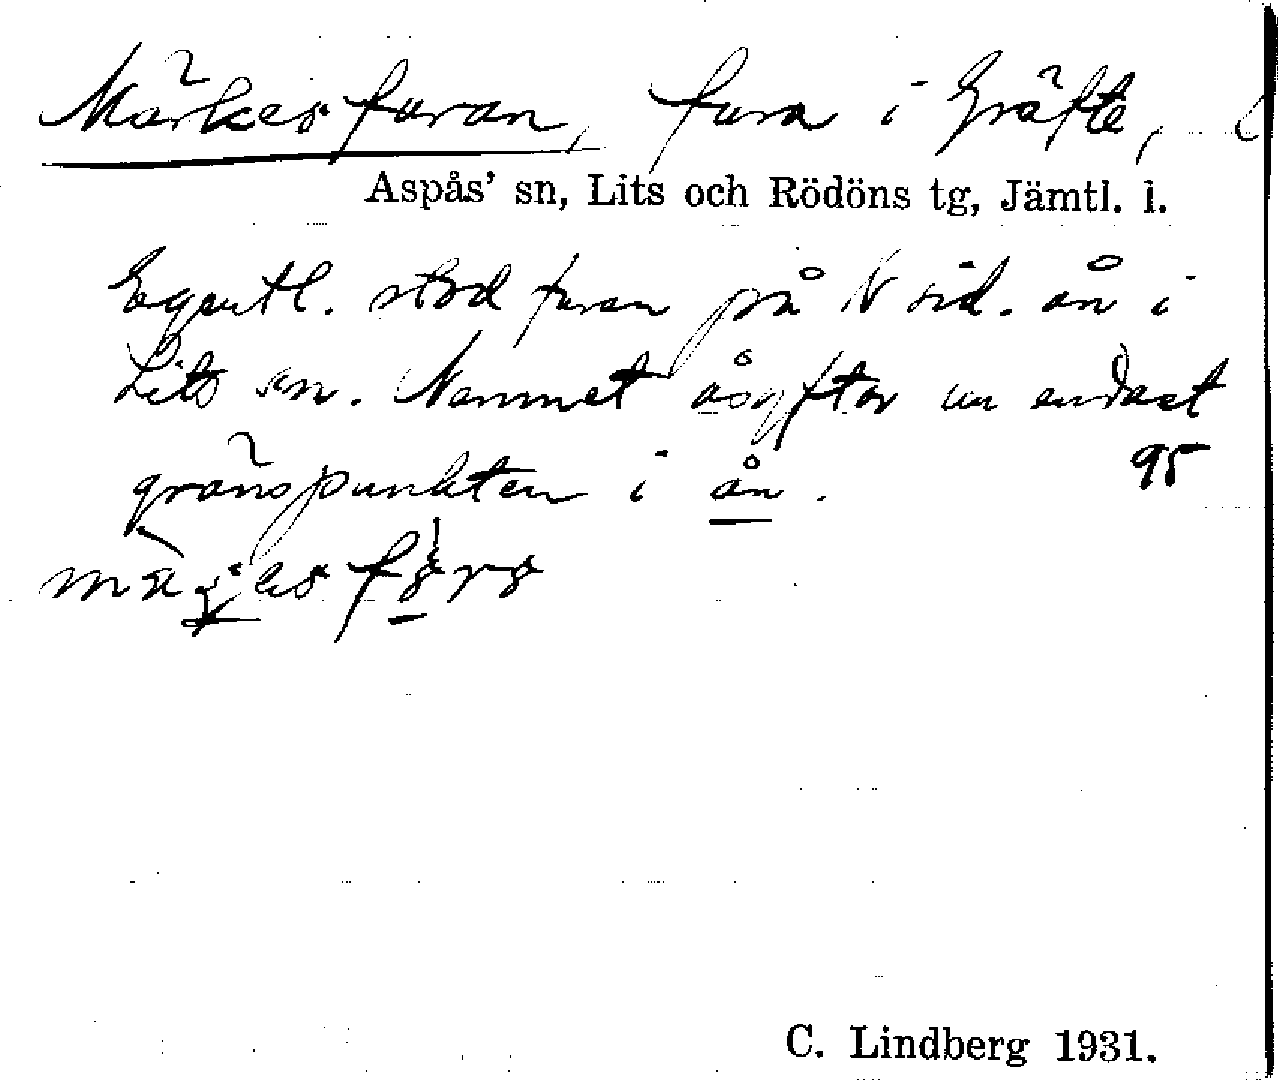 Märkesfuran, fura i Gräfte,
Aspås' sn, Lits och Rödöns tg, Jämtl. l.
Egentl. stod furan på N sid. ån i
Lits sn. Namnet åsyftar nu endast
gränspunkten i ån. 95
C. Lindberg 1931.